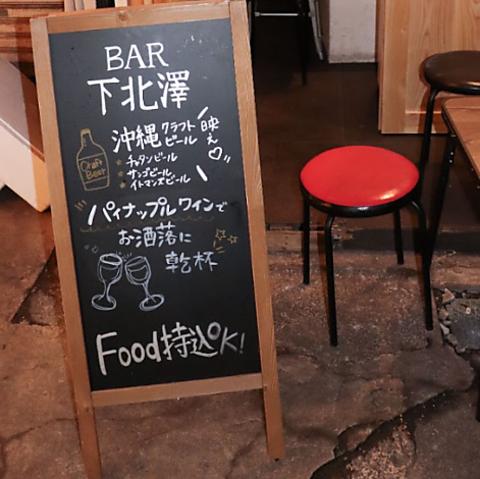 BAR
下北澤
沖縄クラフトビール
映え♡
Craft Beer
チャタンビール
サンゴビール、
イトマンズビール
パイナップルワインで
お洒落に
乾杯
Food持込OK!